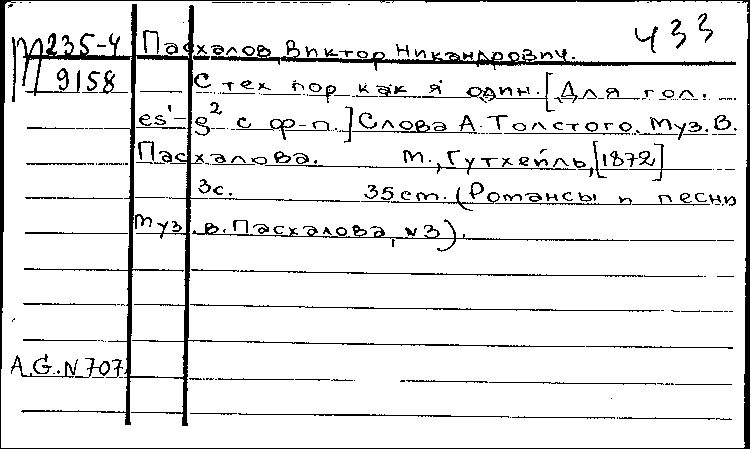 433
М 235-4 Пасхалов, Виктор Никандрович.
9158 С тех пор как я один. [Для гол.
es'-g² с ф-п.] Слова А. Толстого. Муз. В.
Пасхалова. М., Гутхейль, [1872]
3с. 35 cm. (Романсы и песни
муз. В. Пасхалова, №3).
A.G. N 707